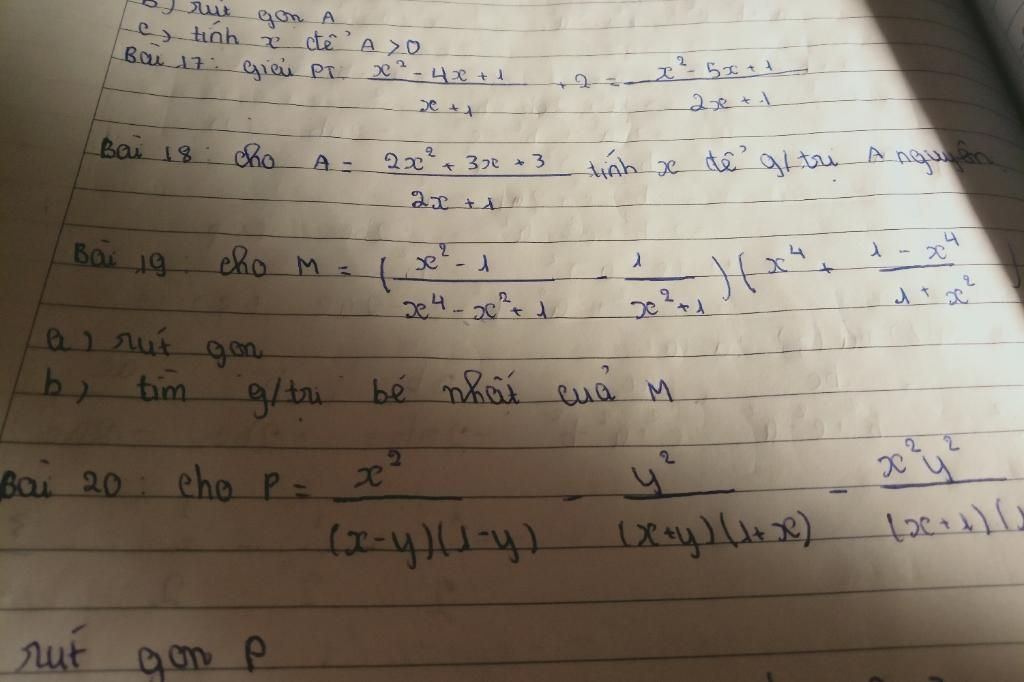 b) rút gọn A
c) tính x để A > 0
Bài 17: giải PT: \frac{x^2 - 4x + 1}{x + 1} + 2 = \frac{x^2 - 5x + 1}{2x + 1}
Bài 18: cho A = \frac{2x^2 + 3x + 3}{2x + 1} tính x để g/trị A nguyên
Bài 19: cho M = (\frac{x^2 - 1}{x^4 - x^2 + 1} - \frac{1}{x^2 + 1})(x^4 + \frac{1 - x^4}{1 + x^2})
a) rút gọn
b) tìm g/trị bé nhất của M
Bài 20: cho P = \frac{x^2}{(x-y)(1-y)} - \frac{y^2}{(x+y)(1+x)} - \frac{x^2y^2}{(x+1)(1
rút gọn P